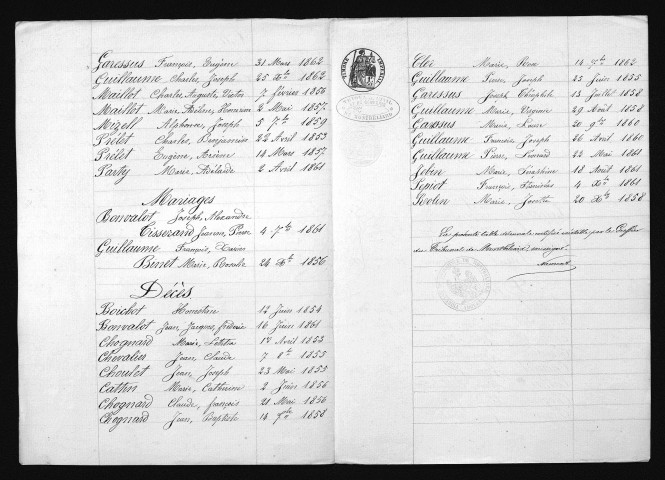 Garessus François, Eugène 31 Mars 1862
Guillaume Charles, Joseph 25 Xbre 1862
Maillot Charles, Auguste, Victor 7 février 1856
Maillot Marie 2 Mai 1857
Alphonse, Joseph 5 7bre 1859
Prélot Charles, Benjamin 22 Avril 1853
Prélot Eugène, Arsène 14 Mars 1857
Party Marie, Adelaïde 2 Avril 1861
Mariages
Bonvalot Joseph, Alexandre
Tisserand Jeanne, 4 7bre 1861
Guillaume François, Xavier
Binet Marie, Rosalie 24 Xbre 1856
Décès
Boichot 12 Juin 1854
Bonvalot Jean, Jacques, fréderic 16 Juin 1861
Chognard Marie, 17 Avril 1853
Chevalier Jean, Claude 7 8bre 1853
Choulot Jean, Joseph 23 Mai 1853
Cattin Marie, Catherine 2 Juin 1856
Chognard Claude, françois 21 Mai 1856
Chognard Jean, Baptiste 14 7bre 1858
Clor Marie, Rose 14 7bre 1862
Guillaume Joseph 23 Juin 1855
Garessus Joseph 13 Juillet 1858
Guillaume Marie, Virginie 29 Août 1858
Garessus Marie, 20 9bre 1860
Guillaume François Joseph 26 Avril 1860
Guillaume Pierre, 22 Mai 1861
Jobin Marie, Séraphine 18 Août 1861
Pepiot François, Stanislas 4 Xbre 1861
Marie, 20 Xbre 1858
La présente table décennale certifiée véritable par le Greffier
du Tribunal de Montbéliard soussigné